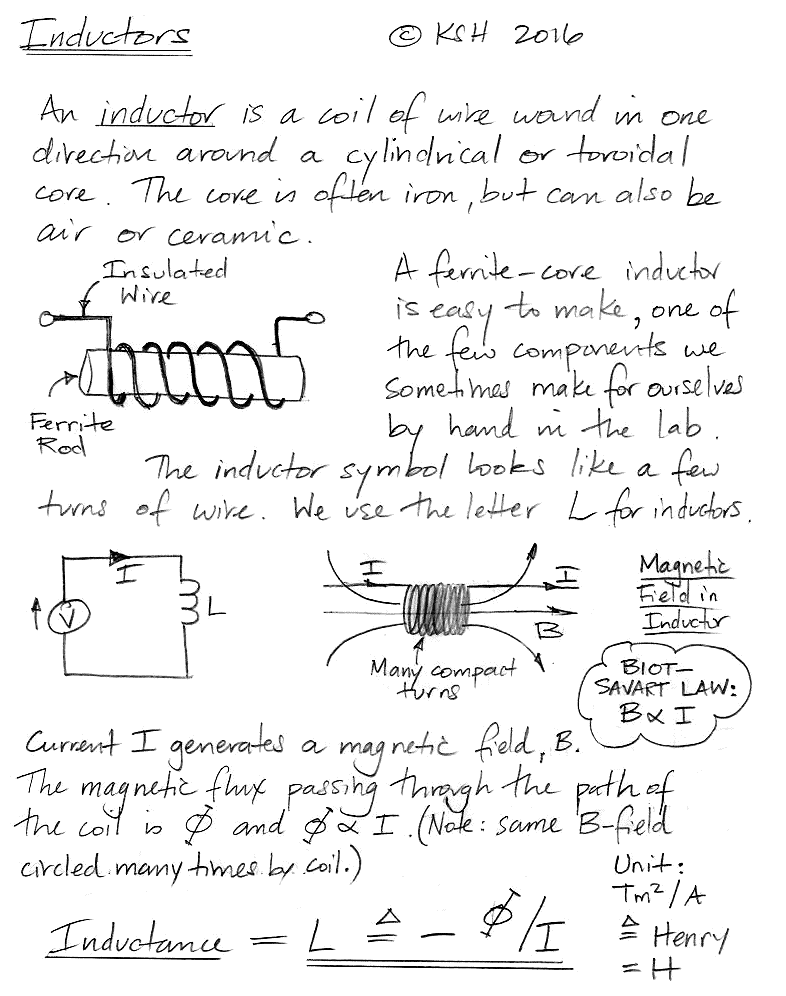 Inductors © KSH 2016
An inductor is a coil of wire wound in one
direction around a cylindrical or toroidal
core. The core is often iron, but can also be
air or ceramic.
Insulated
Wire
Ferrite
Rod
A ferrite-core inductor
is easy to make, one of
the few components we
sometimes make for ourselves
by hand in the lab.
The inductor symbol looks like a few
turns of wire. We use the letter L for inductors.
I
V
L
I
I
B
Many compact
turns
Magnetic
Field in
Inductor
BIOT-
SAVART LAW:
B ∝ I
Current I generates a magnetic field, B.
The magnetic flux passing through the path of
the coil is Φ and Φ ∝ I. (Note: same B-field
circled many times by coil.)
Inductance = L ≜ - Φ/I
Unit:
Tm²/A
≜ Henry
= H